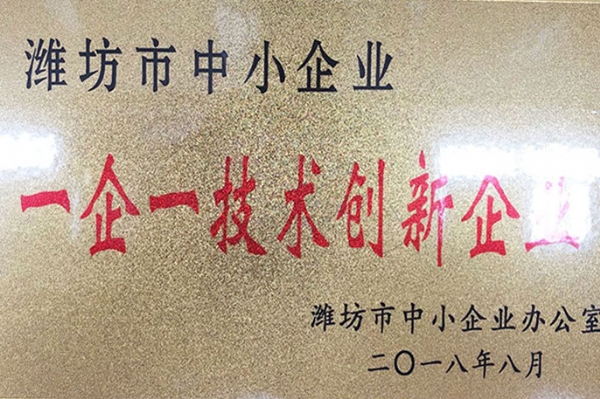 潍坊市中小企业
一企一技术创新企业
潍坊市中小企业办公室
二〇一八年八月